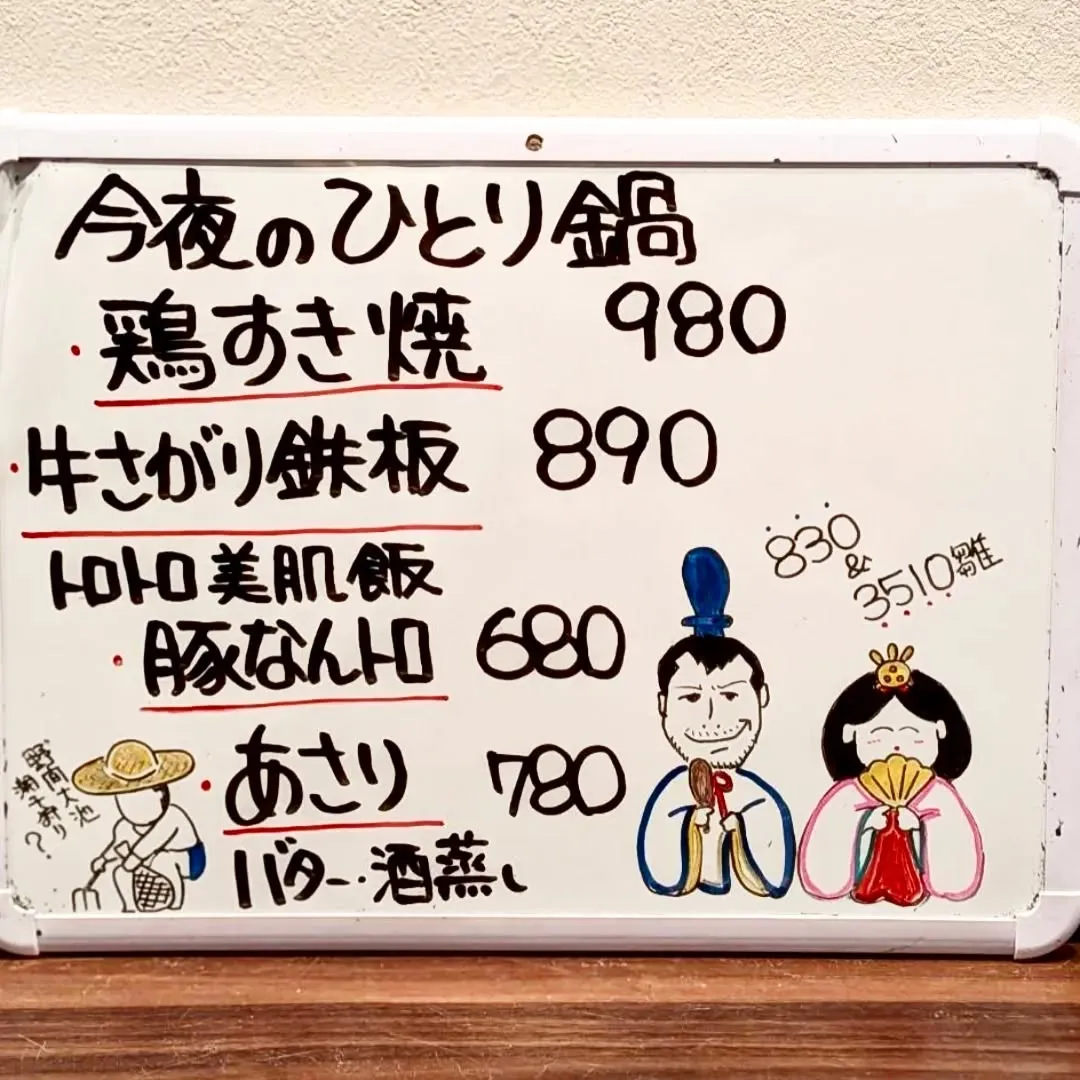 今夜のひとり鍋
・鶏すき焼 980
・牛さがり鉄板 890
トロトロ美肌飯
・豚なんトロ 680
・あさり 780
バター・酒蒸し
830
&
3510雛
野間大池
潮干狩り
?